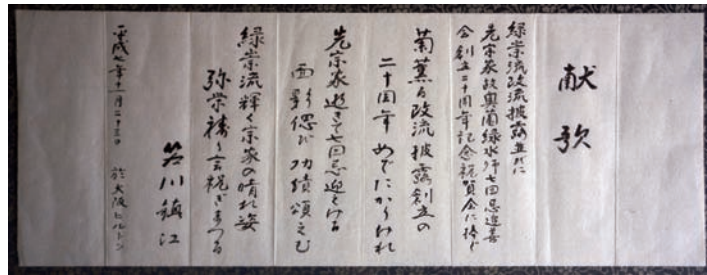 献歌
緑崇流改流披露並びに
先宗家故奥薗緑水師七回忌追善
会創立二十周年記念祝賀会に捧ぐ
菊薫る改流披露創立の
二十周年めでたかりけれ
先宗家逝きて七回忌迎へける
面影偲び功績頌えむ
緑崇流輝く宗家の晴れ姿
弥栄祷り言祝ぎまつる
若川鎮江
平成七年十一月二十三日 於大阪ヒルトン